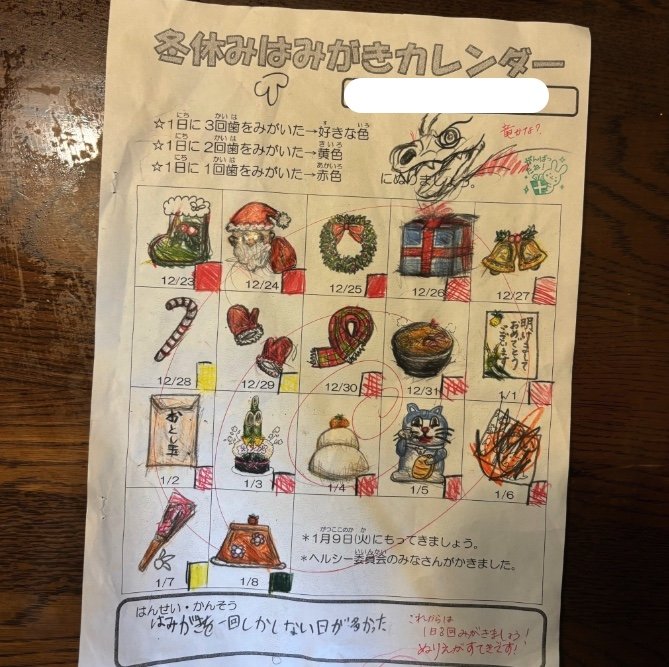 冬休みはみがきカレンダー
☆1日に3回歯をみがいた→好きな色
☆1日に2回歯をみがいた→黄色
☆1日に1回歯をみがいた→赤色
にぬりましょう。
竜かな?
がんばったね!
12/23
12/24
12/25
12/26
12/27
明けまして
おめでとう
ございます
12/28
12/29
12/30
12/31
1/1
おとし玉
1/2
1/3
1/4
1/5
1/6
1/7
1/8
*1月9日(火)にもってきましょう。
*ヘルシー委員会のみなさんがかきました。
はんせい・かんそう
はみがきを一回しかしない日が多かった
これからは
1日3回みがきましょう!
ぬりえがすてきです!